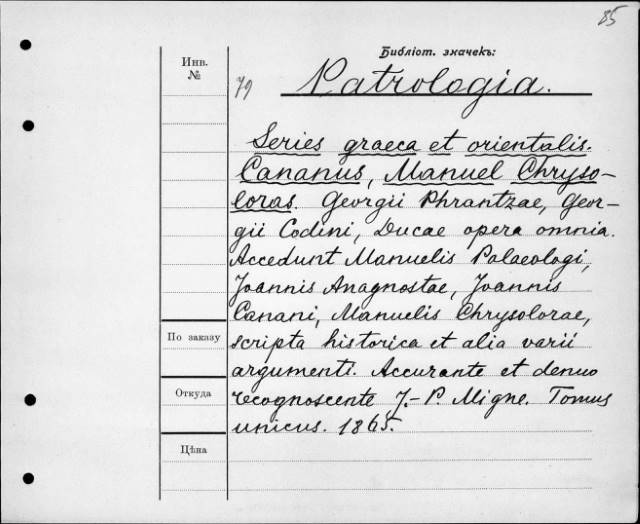 85
Библіот. значекъ:
Инв.
№
79
Patrologia.
Series graeca et orientalis.
Cananus, Manuel Chryso-
loras. Georgii Phrantzae, Geor-
gii Codini, Ducae opera omnia.
Accedunt Manuelis Palaeologi,
Joannis Anagnostae, Joannis
Canani, Manuelis Chrysolorae,
По заказу
scripta historica et alia varii
argumenti. Accurante et denuo
Откуда
recognoscente J.-P. Migne. Tomus
unicus. 1865.
Цѣна